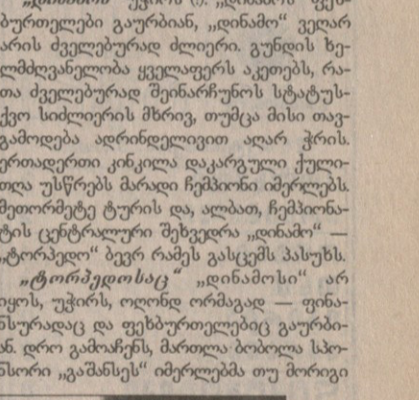 ბურთელები გაურბიან, „დინამო“ ვეღარ
არის ძველებურად ძლიერი. გუნდის ხე-
ლმძღვანელობა ყველაფერს აკეთებს, რა-
თა ძველებურად შეინარჩუნოს სტატუს-
ქვო სიძლიერის მხრივ, თუმცა მისი თავ-
გამოდება ადრინდელივით აღარ ჭრის.
ერთადერთი კინკილა დაკარგული ქული-
თღა უსწრებს მარადი ჩემპიონი იმერლებს.
მეთორმეტე ტურის და, ალბათ, ჩემპიონა-
ტის ცენტრალური შეხვედრა „დინამო“ —
„ტორპედო“ ბევრ რამეს გასცემს პასუხს.
„ტორპედოსაც“ „დინამოსი“ არ
იყოს, უჭირს, ოღონდ ორმაგად — ფინა-
ნსურადაც და ფეხბურთელებიც გაურბი-
ან. დრო გამოაჩენს, მართლა ბობოლა სპო-
ნსორი „გაშანსეს“ იმერლებმა თუ მორიგი